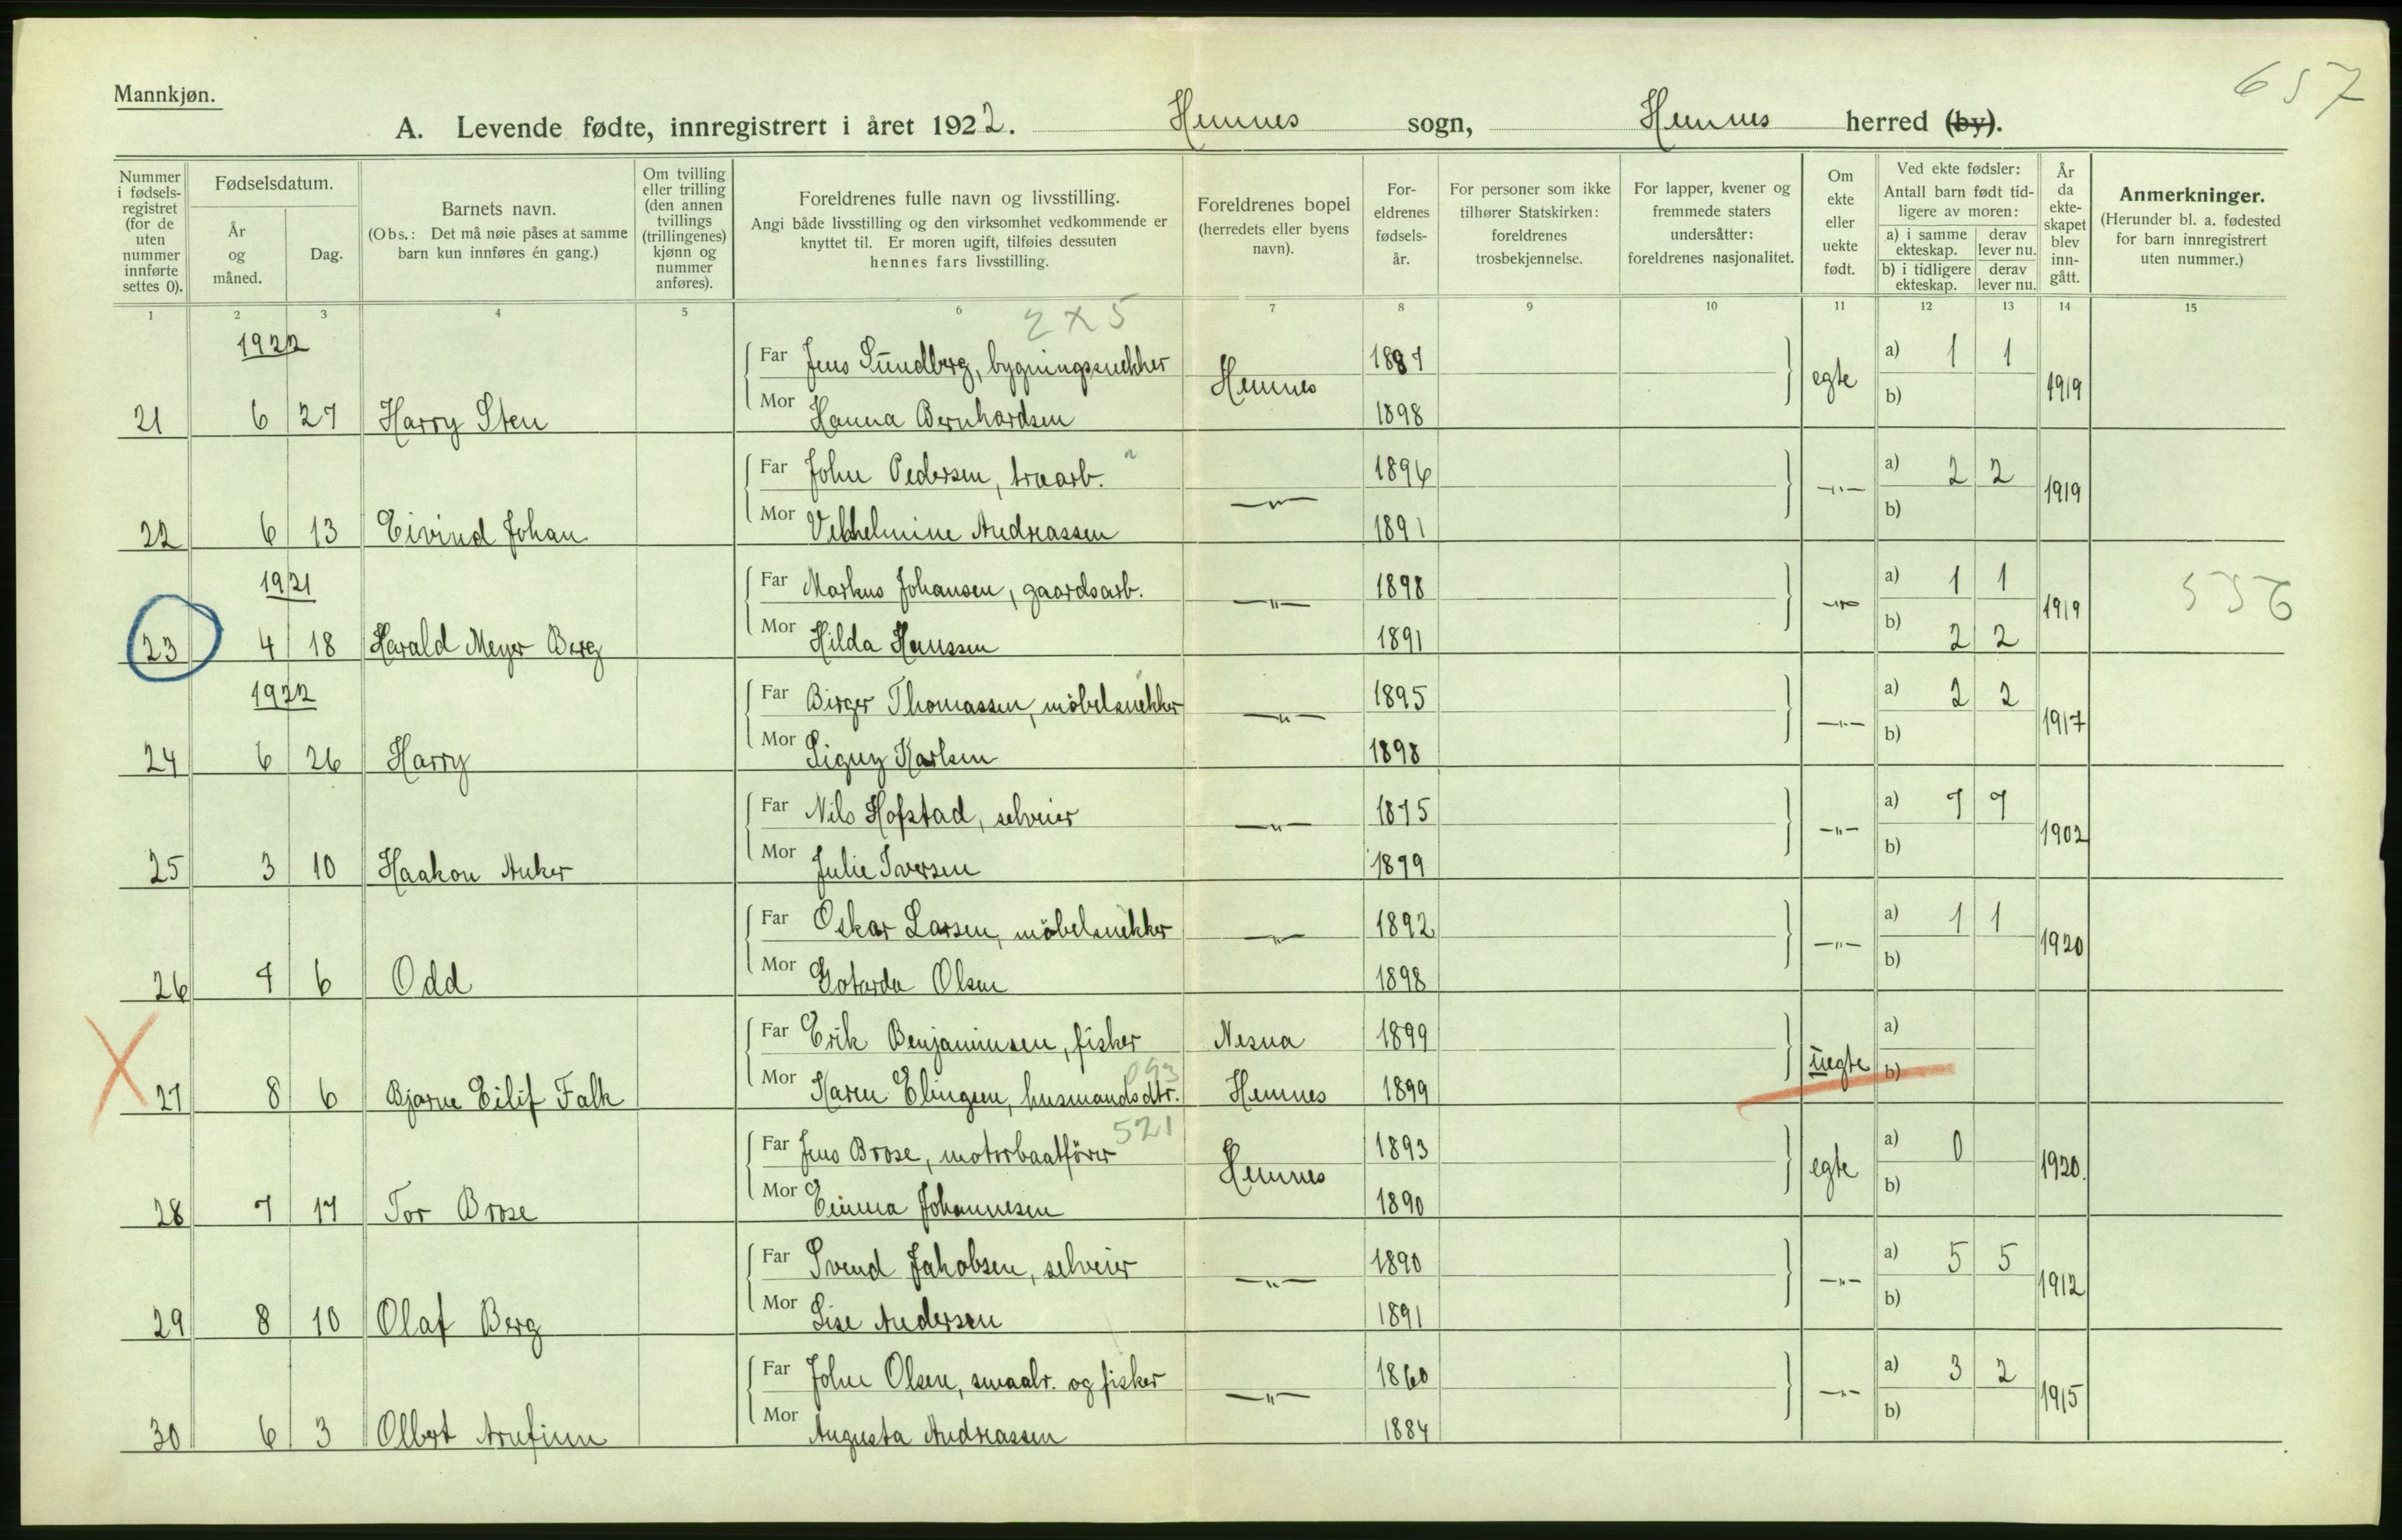 657
Mannkjøn.
A. Levende fødte, innregistrert i året 1922. Hemnes sogn, Hemnes herred (by).
Nummer i fødselsregistret (for de uten nummer innførte settes 0).
Fødselsdatum.
År og måned.
Dag.
Barnets navn.
(Obs.: Det må nøie påses at samme barn kun innføres én gang.)
Om tvilling eller trilling (den annen tvillings (trillingenes) kjønn og nummer anføres).
Foreldrenes fulle navn og livsstilling.
Angi både livsstilling og den virksomhet vedkommende er knyttet til. Er moren ugift, tilføies dessuten hennes fars livsstilling.
Foreldrenes bopel (herredets eller byens navn).
Foreldrenes fødselsår.
For personer som ikke tilhører Statskirken: foreldrenes trosbekjennelse.
For lapper, kvener og fremmede staters undersåtter: foreldrenes nasjonalitet.
Om ekte eller uekte født.
Ved ekte fødsler:
Antall barn født tidligere av moren:
a) i samme ekteskap. derav lever nu.
b) i tidligere ekteskap. derav lever nu.
År da ekteskapet blev inngått.
Anmerkninger.
(Herunder bl. a. fødested for barn innregistrert uten nummer.)
1 2 3 4 5 6 7 8 9 10 11 12 13 14 15
2 x 5
1922
Far Jens Sundberg, bygningssnekker 1887 a) 1 1
21 6 27 Harry Sten Mor Hanna Bernhardsen Hemnes 1898 egte b) 1919
Far John Pedersen, træarb. 1896 a) 2 2
22 6 13 Eivind Johan Mor Vilhelmine Andreassen —"— 1891 —"— b) 1919
1921
Far Markus Johansen, gaardsarb. 1898 a) 1 1
23 4 18 Harald Meyer Berg Mor Hilda Hanssen —"— 1891 —"— b) 2 2 1919 556
1922
Far Birger Thomassen, møbelsnekker 1895 a) 2 2
24 6 26 Harry Mor Signy Karlsen —"— 1898 —"— b) 1917
Far Nils Hofstad, selveier 1875 a) 7 7
25 3 10 Haakon Anker Mor Julie Iversen —"— 1879 —"— b) 1902
Far Oskar Larsen, møbelsnekker 1892 a) 1 1
26 7 6 Odd Mor Gotarda Olsen —"— 1898 —"— b) 1920
Far Erik Benjaminsen, fisker Nesna 1899 a)
093
27 8 6 Bjarne Eilif Falk Mor Karen Elingsen, husmandsdtr. Hemnes 1899 uegte b)
521
Far Jens Brose, motorbaatfører 1893 a) 0
28 7 17 Tor Brose Mor Emma Johannesen Hemnes 1890 egte b) 1920.
Far Svend Jakobsen, selveier 1890 a) 5 5
29 8 10 Olaf Berg Mor Lise Andersen —"— 1891 —"— b) 1912
Far John Olsen, smaabr. og fisker 1860 a) 3 2
30 6 3 Olbert Arnfinn Mor Augusta Andreassen —"— 1884 —"— b) 1915